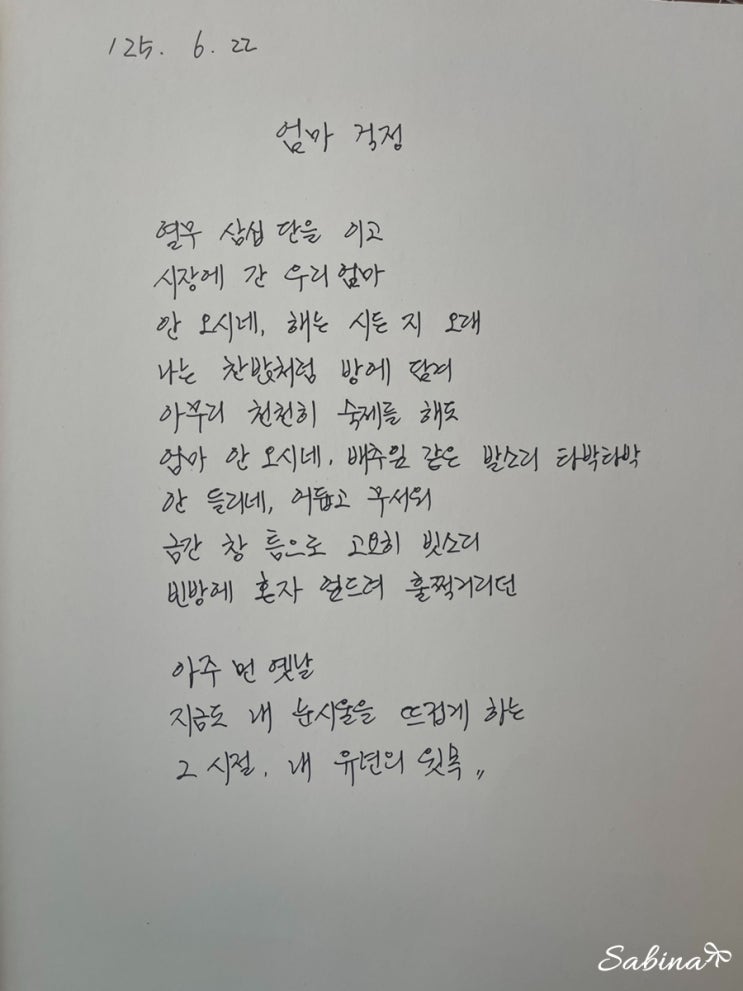 '25. 6. 22
엄마 걱정
열무 삼십 단을 이고
시장에 간 우리 엄마
안 오시네, 해는 시든 지 오래
나는 찬밥처럼 방에 담겨
아무리 천천히 숙제를 해도
엄마 안 오시네, 배추잎 같은 발소리 타박타박
안 들리네, 어둡고 무서워
금간 창 틈으로 고요히 빗소리
빈방에 혼자 엎드려 훌쩍거리던
아주 먼 옛날
지금도 내 눈시울을 뜨겁게 하는
그 시절, 내 유년의 윗목〃
Sabina